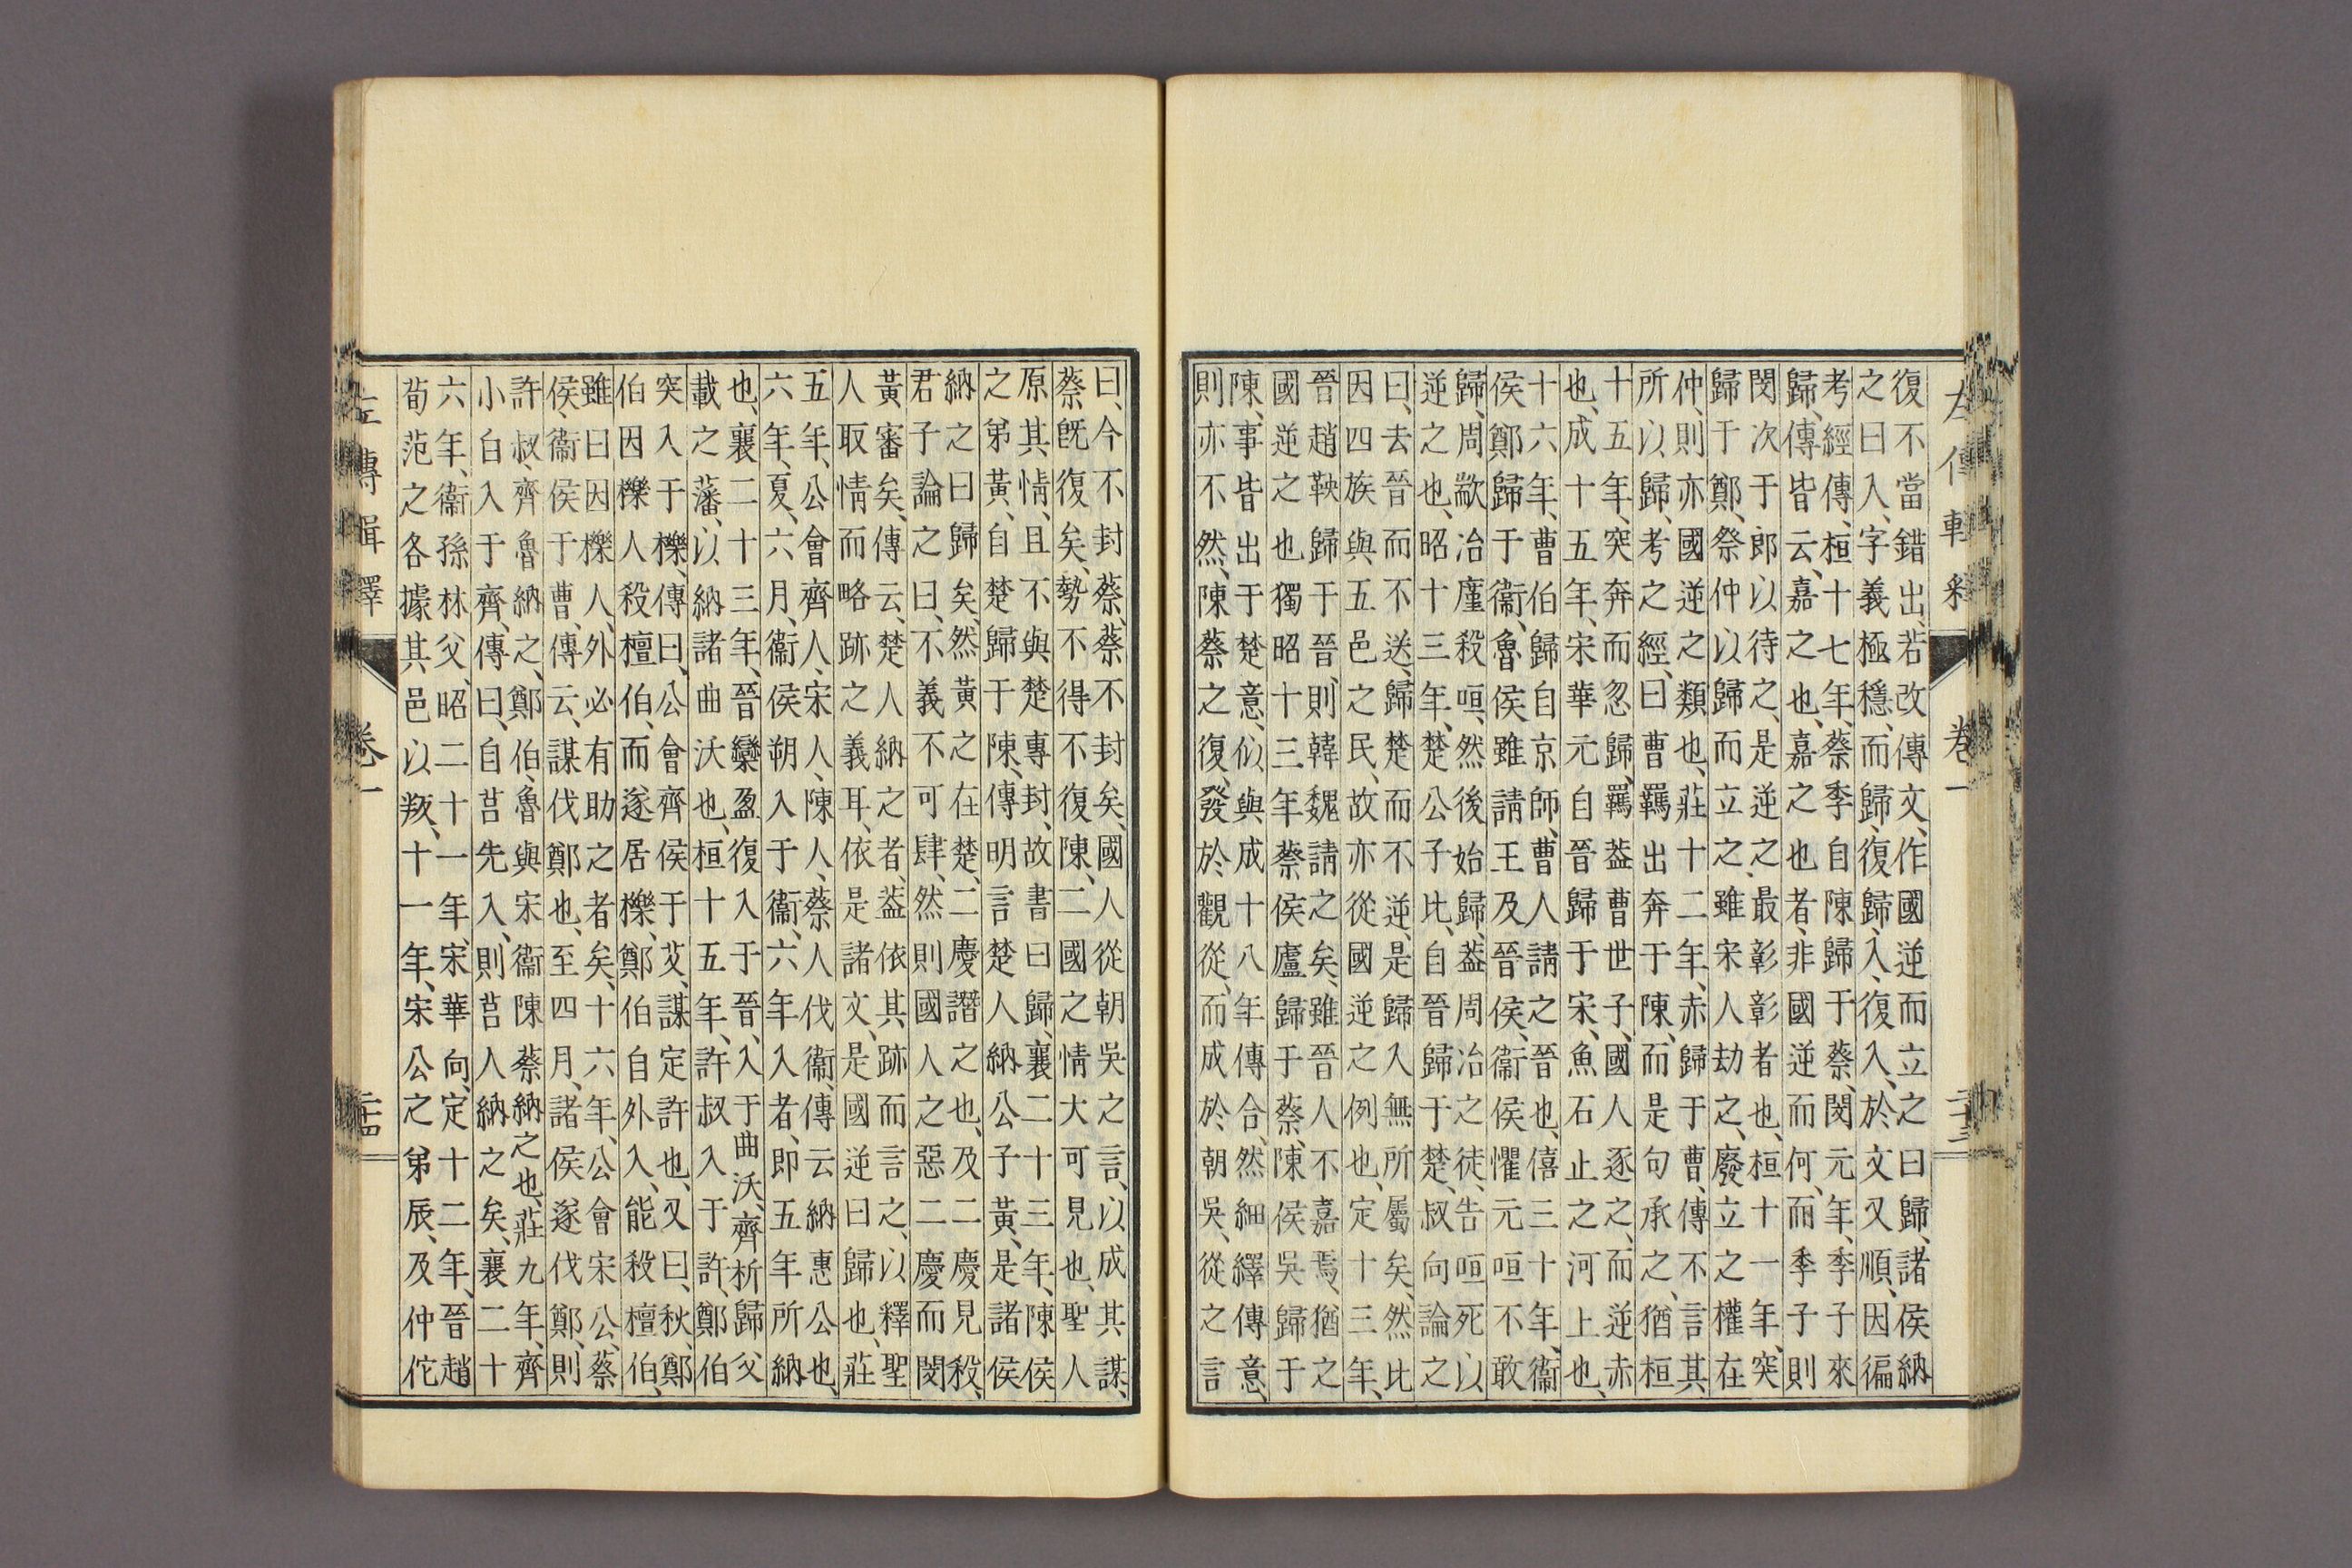 復不當錯出、若改傳文、作國逆而立之曰歸、諸侯納
之曰入、字義極穩、而歸、復歸、入、復入、於文又順、因徧
考經傳、桓十七年、蔡季自陳歸于蔡、閔元年、季子來
歸、傳皆云、嘉之也、嘉之也者、非國逆而何、而季子則
閔次于郎以待之、是逆之、最彰彰者也、桓十一年、突
歸于鄭、祭仲以歸而立之、雖宋人劫之、廢立之權在
仲、則亦國逆之類也、莊十二年、赤歸于曹、傳不言其
所以歸、考之經、曰曹羈出奔于陳、而是句承之、猶桓
十五年、突奔而忽歸、羈蓋曹世子、國人逐之、而逆赤
也、成十五年、宋華元自晉歸于宋、魚石止之河上也、
十六年、曹伯歸自京師、曹人請之晉也、僖三十年、衞
侯鄭歸于衞、魯侯雖請王及晉侯、衞侯懼元咺不敢
歸、周歂冶廑殺咺、然後始歸、蓋周冶之徒、告咺死以
逆之也、昭十三年、楚公子比、自晉歸于楚、叔向論之
曰、去晉而不送、歸楚而不逆、是歸入無所屬矣、然比
因四族與五邑之民、故亦從國逆之例也、定十三年、
晉趙鞅歸于晉、則韓魏請之矣、雖晉人不嘉焉、猶之
國逆之也獨昭十三年蔡侯廬歸于蔡、陳侯吳歸于
陳、事皆出于楚意、似與成十八年傳合、然細繹傳意、
則亦不然、陳蔡之復、發於觀從、而成於朝吳、從之言
曰、今不封蔡、蔡不封矣、國人從朝吳之言、以成其謀、
蔡旣復矣、勢不得不復陳、二國之情大可見也、聖人
原其情、且不與楚專封、故書曰歸、襄二十三年、陳侯
之弟黃、自楚歸于陳、傳明言楚人納公子黃、是諸侯
納之曰歸矣、然黃之在楚、二慶譖之也、及二慶見殺、
君子論之曰、不義不可肆、然則國人之惡二慶而閔
黃審矣、傳云、楚人納之者、蓋依其跡而言之、以釋聖
人取情而略跡之義耳、依是諸文、是國逆曰歸也、莊
五年、公會齊人、宋人、陳人、蔡人伐衞、傳云納惠公也、
六年、夏、六月、衞侯朔入于衞、六年入者、即五年所納
也、襄二十三年、晉欒盈復入于晉、入于曲沃、齊析歸父
載之藩、以納諸曲沃也、桓十五年、許叔入于許、鄭伯
突入于櫟、傳曰、公會齊侯于艾、謀定許也、又曰、秋、鄭
伯因櫟人殺檀伯、而遂居櫟、鄭伯自外入、能殺檀伯、
雖曰因櫟人、外必有助之者矣、十六年、公會宋公、蔡
侯、衞侯于曹、傳云、謀伐鄭也、至四月、諸侯遂伐鄭、則
許叔、齊魯納之、鄭伯、魯與宋衞陳蔡納之也、莊九年、齊
小白入于齊、傳曰、自莒先入、則莒人納之矣、襄二十
六年、衞孫林父、昭二十一年、宋華向、定十二年、晉趙
荀范之各據其邑以叛、十一年、宋公之弟辰、及仲佗
左傳輯釋 卷一 二十四